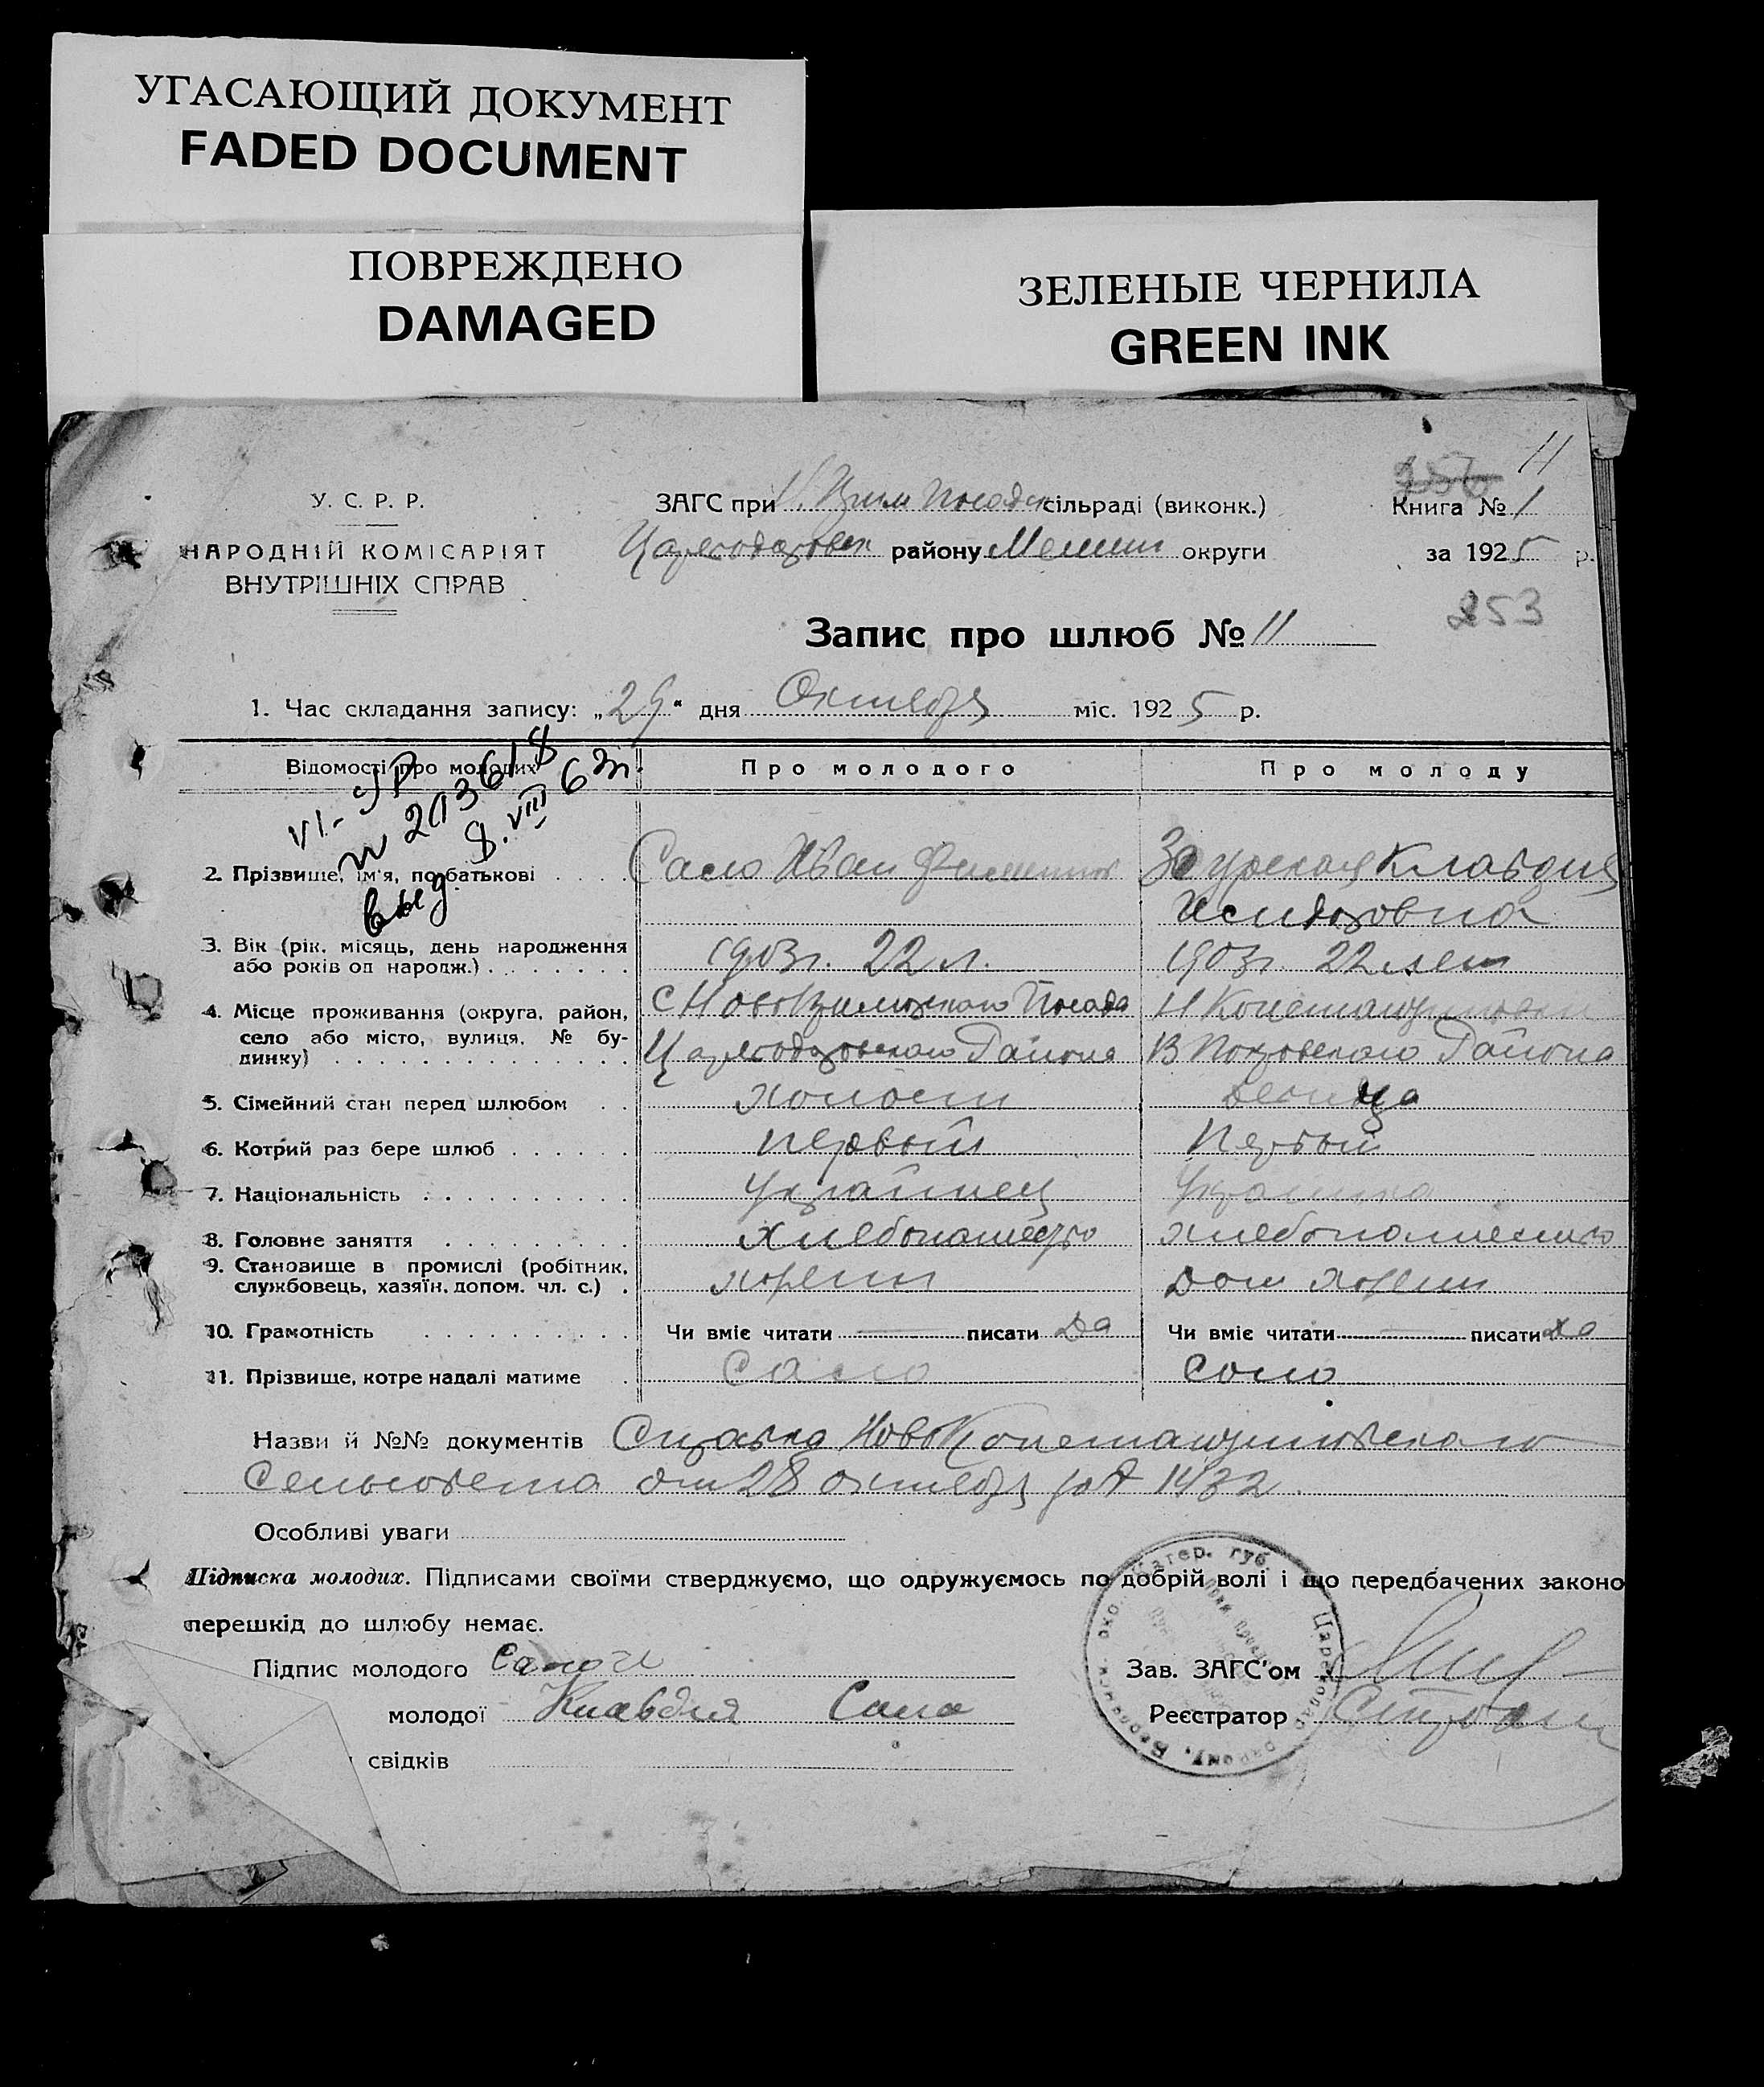 УГАСАЮЩИЙ ДОКУМЕНТ
FADED DOCUMENT
ПОВРЕЖДЕНО
DAMAGED
ЗЕЛЕНЫЕ ЧЕРНИЛА
GREEN INK
11
256
У. С. Р. Р.
НАРОДНІЙ КОМІСАРІЯТ
ВНУТРІШНІХ СПРАВ
ЗАГС при сільраді (виконк.)
району округи
Книга № 1
за 1925 р.
253
Запис про шлюб № 11
1. Час складання запису: „29" дня Октября міс. 1925 р.
Відомості про молодих
Про молодого
Про молоду
VI-ЯР
№ 203618
выд. 8.VIII 63г.
2. Прізвище, ім'я, по батькові . . . . Сало Иван Клавдия
Исидоровна
3. Вік (рік, місяць, день народження
або років од народж.) . . . . . . . 1903г. 22 л. 1903г. 22 лет
4. Місце проживання (округа, район, с Посада
село або місто, вулиця, № бу- Района В Покровского Района
динку) . . . . . . . . . . . . . .
5. Сімейний стан перед шлюбом . . холост девица
6. Котрий раз бере шлюб . . . . . . первый Первый
7. Національність . . . . . . . . . Украинец Украинка
8. Головне заняття . . . . . . . . хлебопашество хлебопашество
9. Становище в промислі (робітник,
службовець, хазяїн, допом. чл. с.) .
10. Грамотність . . . . . . . . . . Чи вміє читати — писати да Чи вміє читати — писати да
11. Прізвище, котре надалі матиме . Сало Сало
Назви й №№ документів Справка Ново Константиновского
Сельсовета от 28 октября 1432
Особливі уваги
Підписка молодих. Підписами своїми стверджуємо, що одружуємось по добрій волі і що передбачених законо
перешкід до шлюбу немає.
Підпис молодого Сало И
Зав. ЗАГС'ом
молодої Клавдия Сало
Реєстратор
свідків